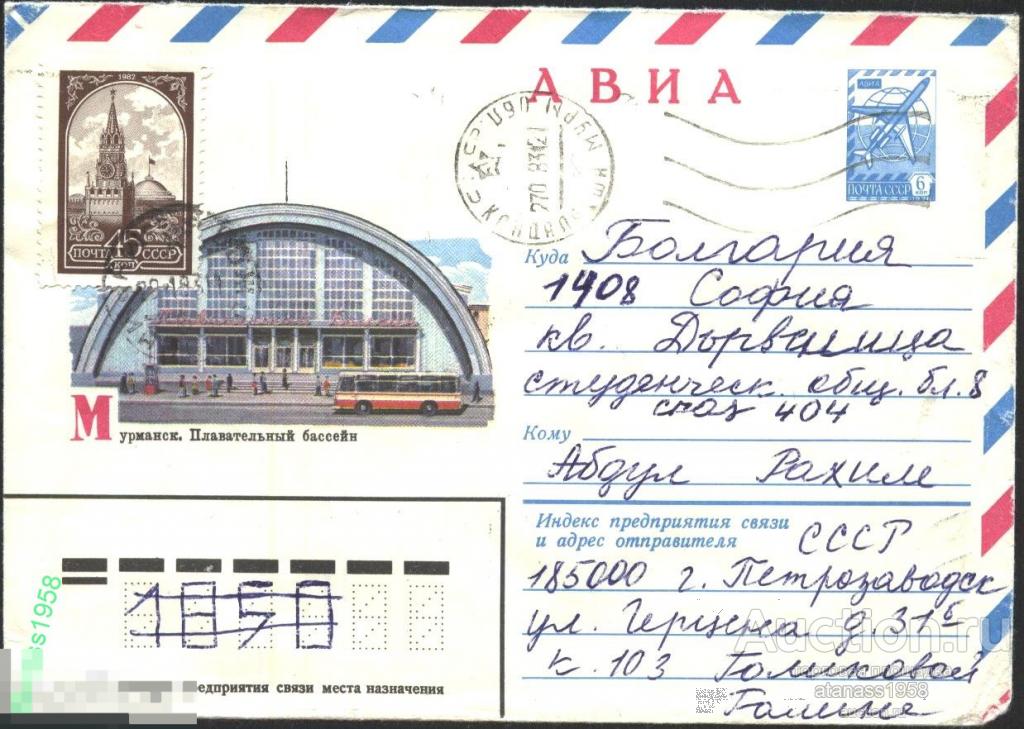 АВИА
1982
45
ПОЧТА СССР
КОП
АВИА
ПОЧТА СССР
6
КОП
Куда Болгария
1408 София
кв. Дървеница
студенческ. общ. бл. 8
стая 404
Кому
Абдул Рахим
Мурманск. Плавательный бассейн
Индекс предприятия связи
и адрес отправителя
СССР
185000 г. Петрозаводск
ул. Герцена д. 31б
к. 103 Голиковой
Галине
1050
редприятия связи места назначения
ss1958
Auction.ru
atanass1958